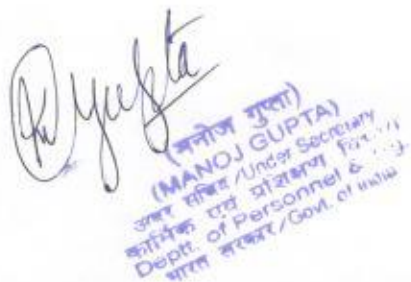 Gupta
(मनोज गुप्ता)
(MANOJ GUPTA)
अवर सचिव /Under Secretary
कार्मिक एवं प्रशिक्षण
Deptt. of Personnel &
भारत सरकार/Govt. of India